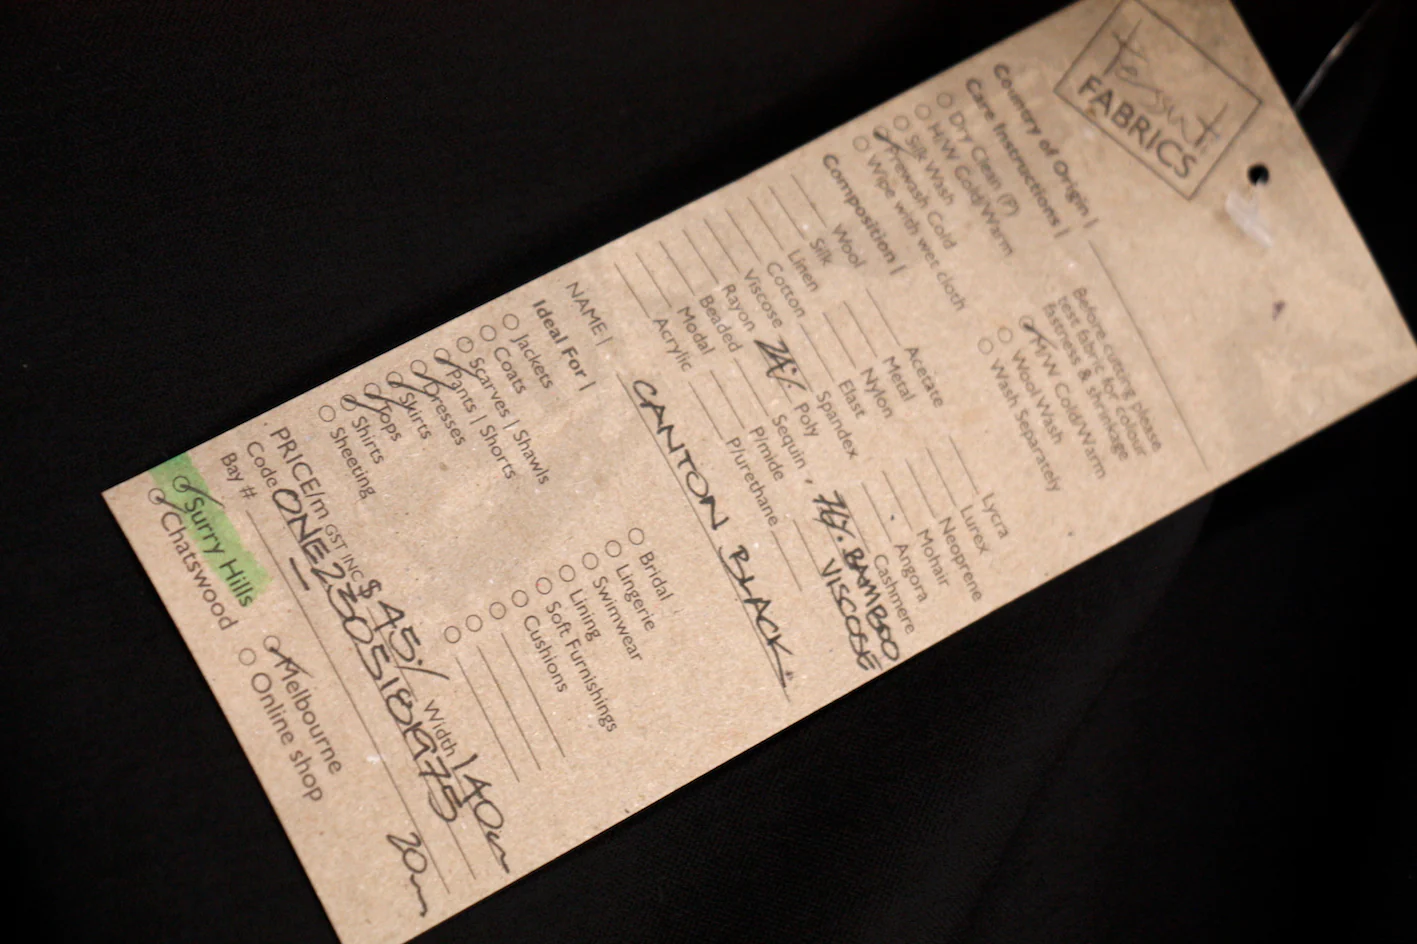 tessuti
FABRICS
Country of Origin |
Care Instructions |
Before cutting please
test fabric for colour
fastness & shrinkage
Dry Clean (P)
H/W Cold/Warm
Silk Wash
Prewash Cold
Wipe with wet cloth
M/W Cold/Warm
Wool Wash
Wash Separately
Composition |
Wool Acetate Lycra
Silk Metal Lurex
Linen Nylon Neoprene
Cotton Elast Mohair
Viscose Spandex Angora
Rayon 24% Poly Cashmere
Beaded Sequin 76% BAMBOO
Modal P/mide VISCOSE
Acrylic P/urethane
NAME | CANTON BLACK
Ideal For |
Jackets Bridal
Coats Lingerie
Scarves | Shawls Swimwear
Pants | Shorts Lining
Dresses Soft Furnishings
Skirts Cushions
Tops
Shirts
Sheeting
PRICE/m GST INC $ 45 Width 140cm
Code
Bay # 20m
Surry Hills Melbourne
Chatswood Online shop